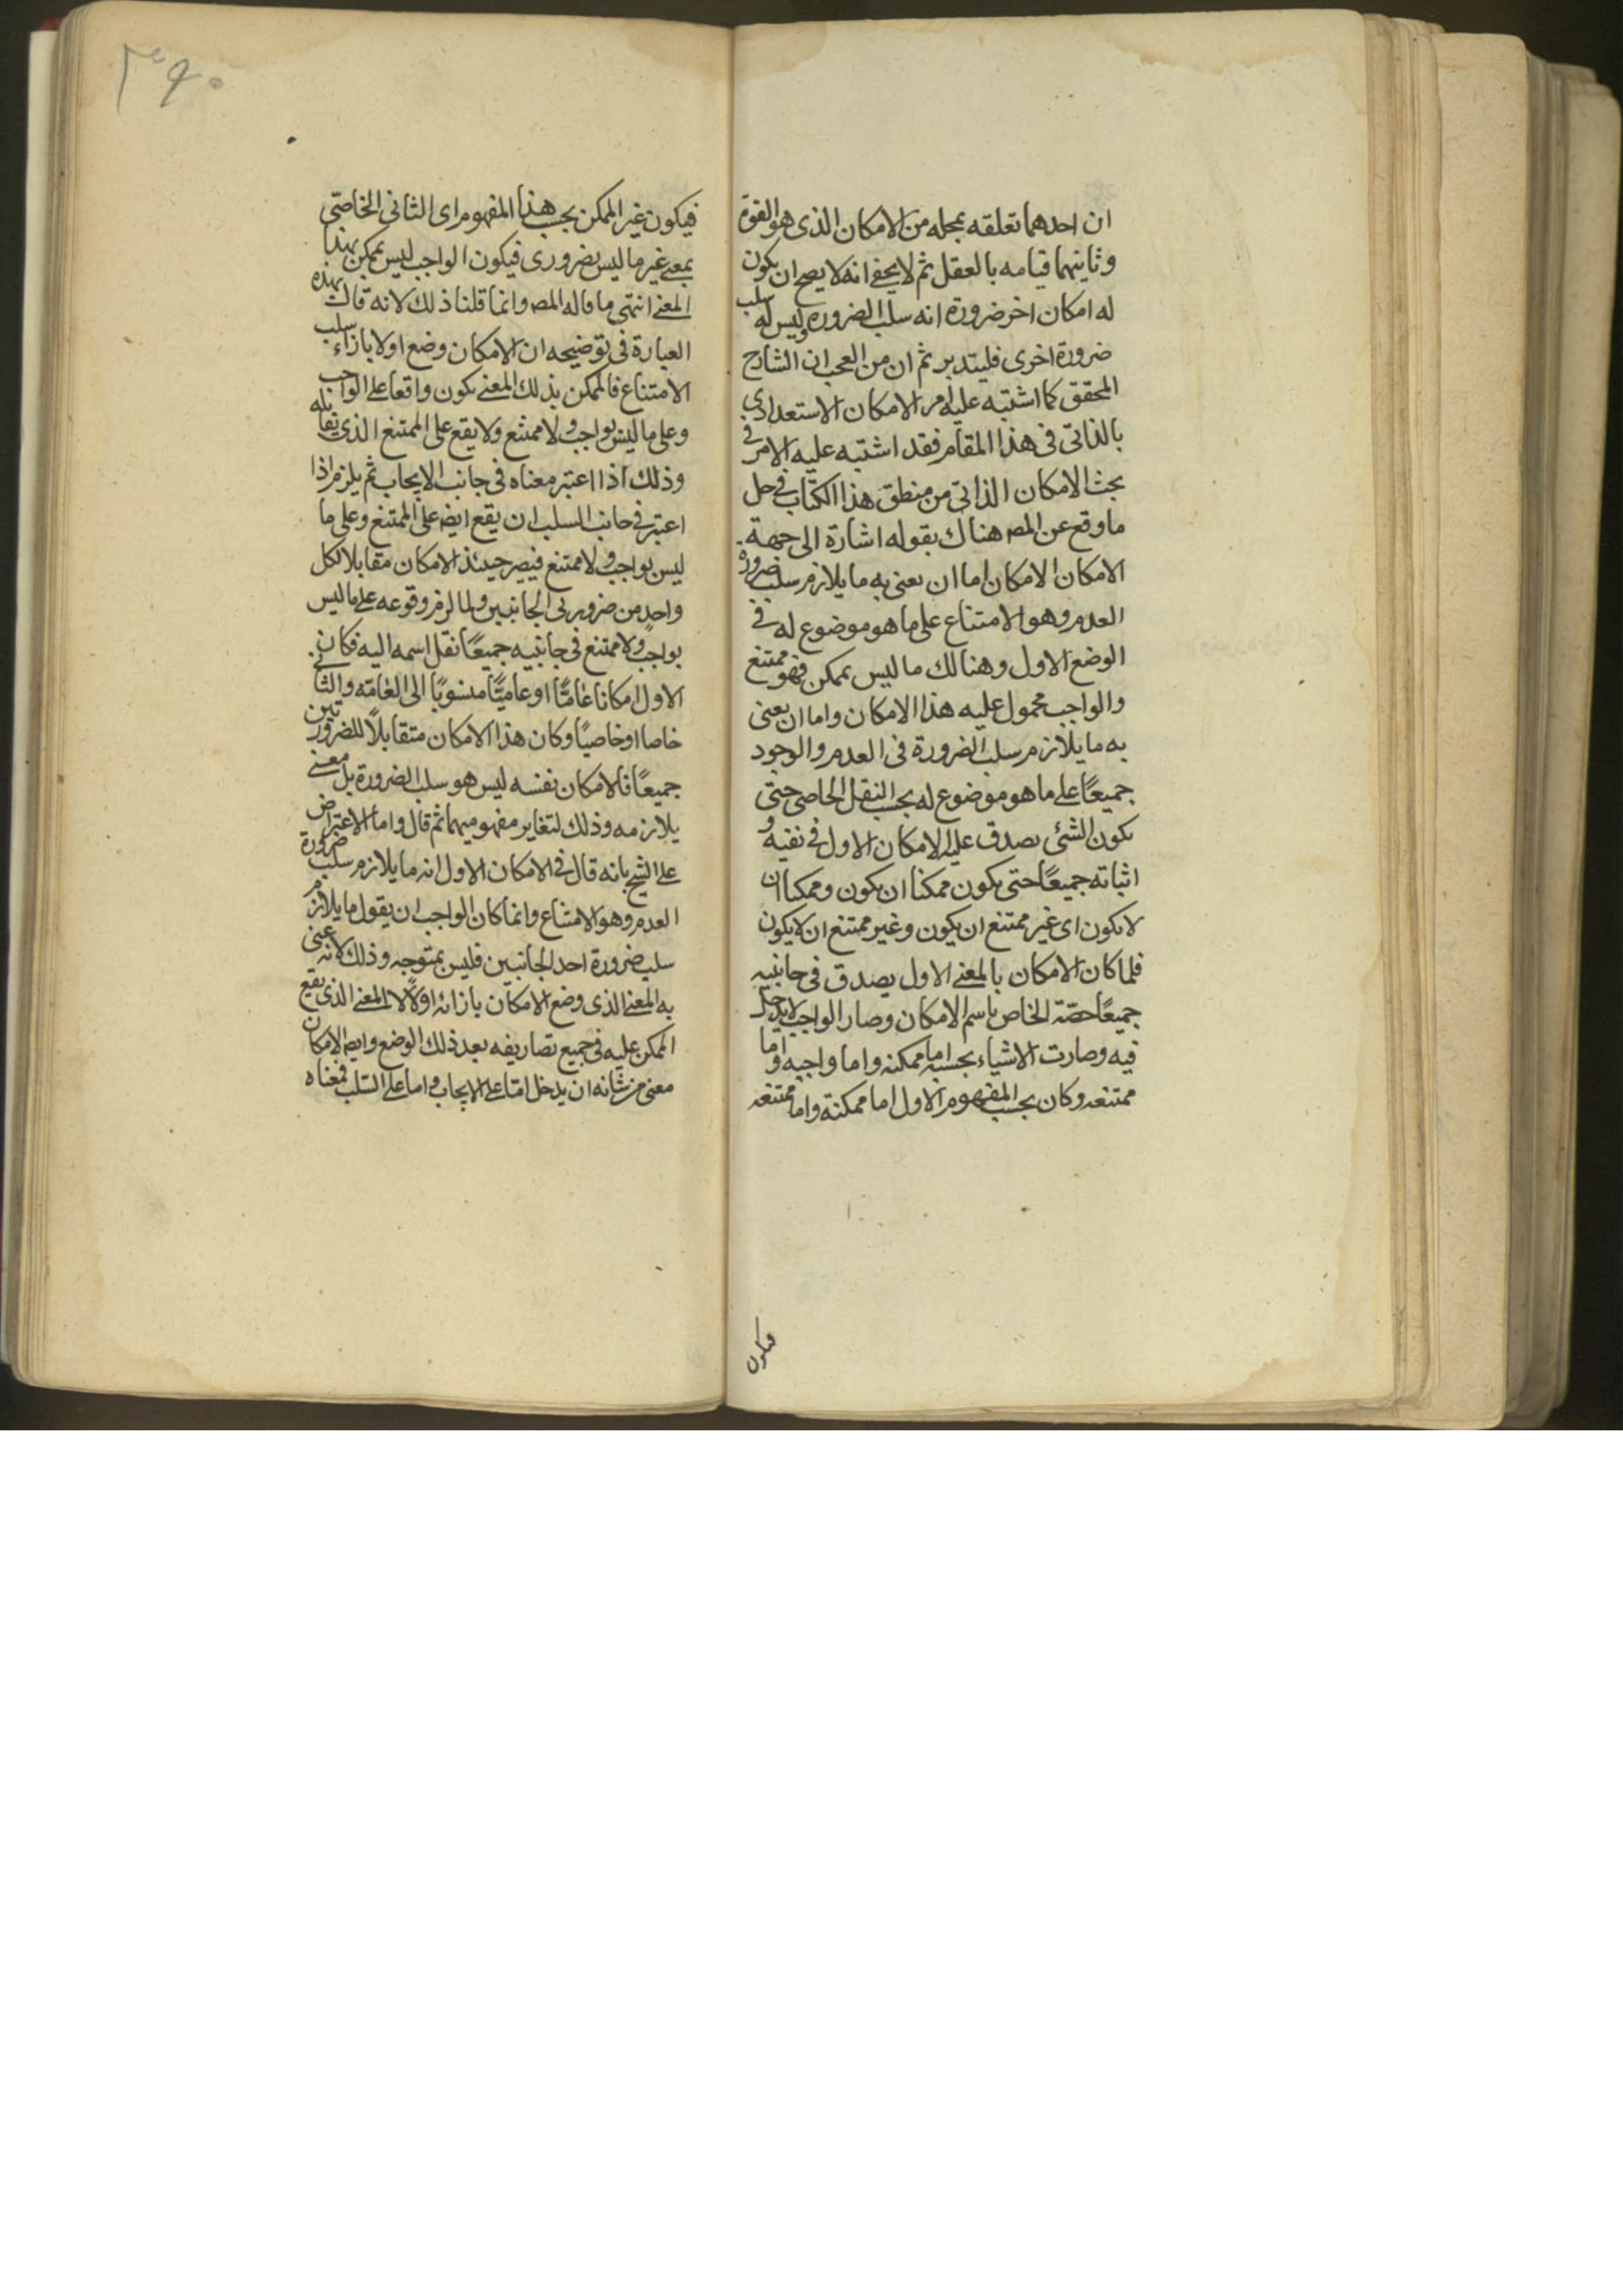 ان احدهما تعلقه بمحله من الامكان الذى هو القوة
وثانيهما قيامه بالعقل ثم لا يخفى انه لا يصح ان يكون
له امكان اخر ضرورة انه سلب الضرورة وليس له سلب
ضرورة اخرى فليتدبر ثم ان من العجب ان الشارح
المحقق كما اشتبه عليه امر الامكان الاستعدادي
بالذاتى فى هذا المقام فقد اشتبه عليه الامر فى
بحث الامكان الذاتى من منطق هذا الكتاب فى حل
ما وقع عن المصه هناك بقوله اشارة الى جهة
الامكان الامكان اما ان يعنى به ما يلازم سلب ضرورة
العدم وهو الامتناع على ما هو موضوع له فى
الوضع الاول وهنالك ما ليس بممكن فهو ممتنع
والواجب محمول عليه هذا الامكان واما ان يعنى
به ما يلازم سلب الضرورة فى العدم والوجود
جميعًا على ما هو موضوع له بحسب النقل الخاصى حتى
يكون الشئى يصدق عليه الامكان الاول فى نفيه و
اثباته جميعًا حتى يكون ممكنا ان يكون وممكنا ان
لا يكون اى غير ممتنع ان يكون وغير ممتنع ان لا يكون
فلما كان الامكان بالمعنى الاول يصدق فى جانبيه
جميعًا خصّه الخاص باسم الامكان وصار الواجب لا يدخل
فيه وصارت الاشياء بحسبه اما ممكنه واما واجبه واما
ممتنعه وكان بحسب المفهوم الاول اما ممكنة واما ممتنعه
فيكون
٣٤٠
فيكون غير الممكن بحسب هذا المفهوم اى الثانى الخاصّى
بمعنى غير ما ليس بضرورى فيكون الواجب ليس بممكن بهذا
المعنى انتهى ما قاله المصه وانما قلنا ذلك لانه قال بهذه
العبارة فى توضيحه ان الامكان وضع اولا بازاء سلب
الامتناع فالممكن بذلك المعنى يكون واقعا على الواجب
وعلى ما ليس بواجب ولا ممتنع ولا يقع على الممتنع الذى يقابله
وذلك اذا اعتبر معناه فى جانب الايجاب ثم يلزم اذا
اعتبر فى جانب السلب ان يقع ايضه على الممتنع وعلى ما
ليس بواجب ولا ممتنع فيصير حينئذ الامكان مقابلا لكل
واحد من ضروريى الجانبين ولما لزم وقوعه على ما ليس
بواجب ولا ممتنع فى جانبيه جميعًا نقل اسمه اليه فكان
الاول امكانا عامًّا او عاميًّا منسوبًا الى العامّه والثانى
خاصا او خاصيًا وكان هذا الامكان متقابلًا للضرورتين
جميعًا فالامكان نفسه ليس هو سلب الضرورة بل معنى
يلازمه وذلك لتغاير مفهوميهما ثم قال واما الاعتراض
على الشيخ بانه قال فى الامكان الاول انه ما يلازم سلب ضرورة
العدم وهو الامتناع وانما كان الواجب ان يقول ما يلازم
سلب ضرورة احد الجانبين فليس بمتوجه وذلك لانه عنى
به المعنى الذى وضع الامكان بازائه اولًا لا المعنى الذى يقع
الممكن عليه فى جميع تصاريفه بعد ذلك الوضع وايضه الامكان
معنى من شانه ان يدخل امّا على الايجاب واما على السّلب فمعناه